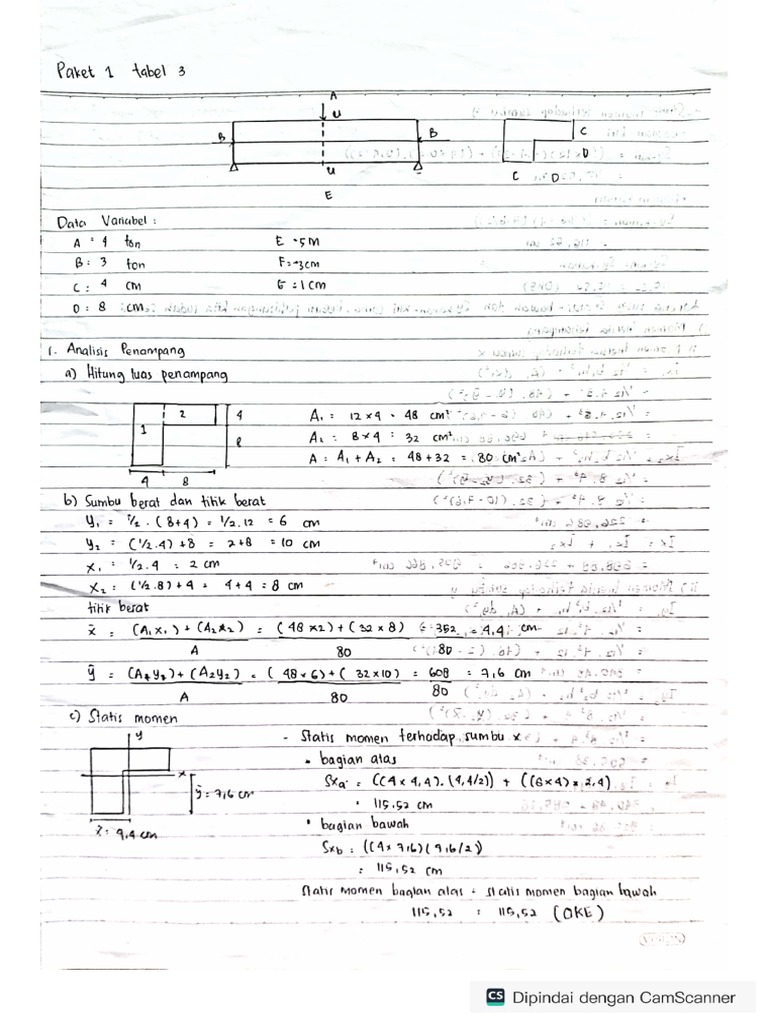 Paket 1 tabel 3
A
u
B
B
C
D
C
D
u
E
Data Variabel :
A = 4 ton
E = 5 M
B = 3 ton
F = 3 cm
C = 4 cm
G = 1 cm
D = 8 cm
1. Analisis Penampang
a) Hitung luas penampang
1
2
4
8
4
8
A₁ = 12 x 4 = 48 cm²
A₂ = 8 x 4 = 32 cm²
A = A₁ + A₂ = 48 + 32 = 80 cm²
b) Sumbu berat dan titik berat
y₁ = 1/2 . (8+4) = 1/2 . 12 = 6 cm
y₂ = (1/2 . 4) + 8 = 2+8 = 10 cm
x₁ = 1/2 . 4 = 2 cm
x₂ = (1/2 . 8) + 4 = 4 + 4 = 8 cm
titik berat
x̄ = (A₁x₁) + (A₂x₂) = (48 x 2) + (32 x 8) = 352 = 4,4 cm
A 80 80
ȳ = (A₁y₁) + (A₂y₂) = (48 x 6) + (32 x 10) = 608 = 7,6 cm
A 80 80
c) Statis momen
y
x
ȳ = 7,6 cm
x̄ = 4,4 cm
- Statis momen terhadap sumbu x
• bagian atas
Sxa = ((4 x 4,4) . (4,4/2)) + ((8 x 4) x 2,4)
= 115,52 cm
• bagian bawah
Sxb = ((4 x 7,6) (7,6/2))
= 115,52 cm
Statis momen bagian atas = statis momen bagian bawah
115,52 = 115,52 (OKE)
VISION
CS Dipindai dengan CamScanner